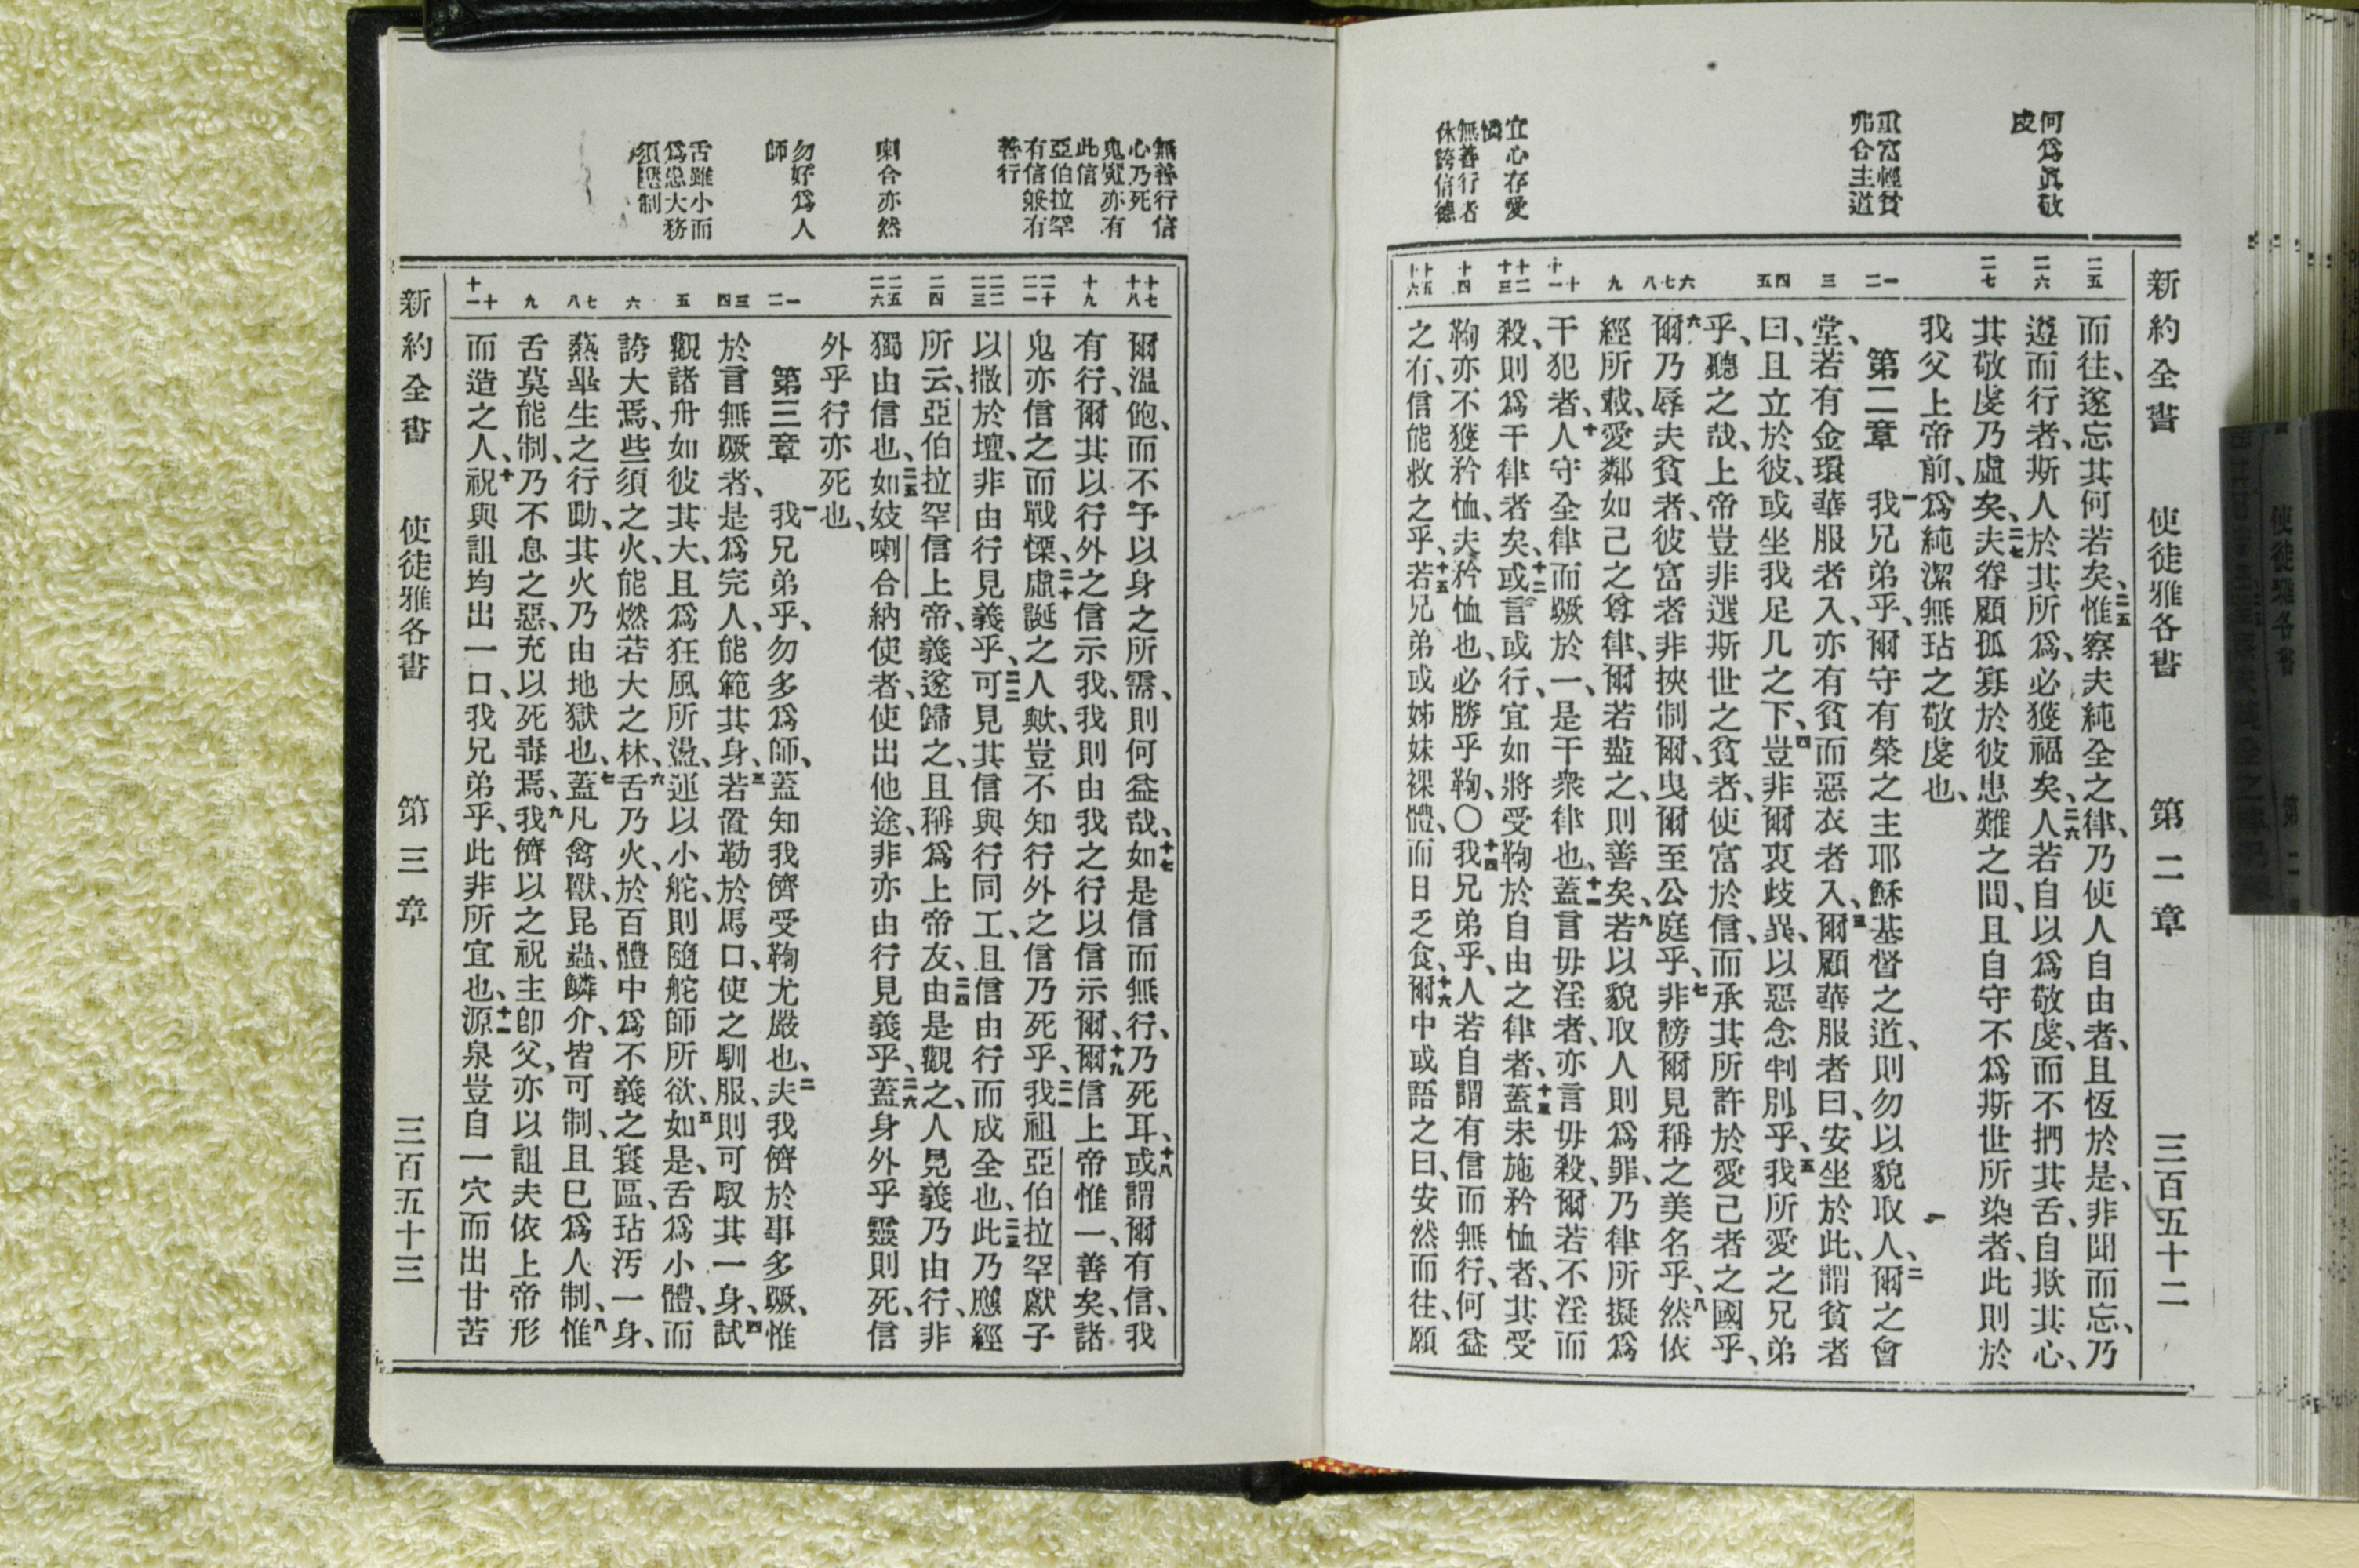 新約全書 使徒雅各書 第二章 三百五十二
何爲眞敬
虔
重富輕貧
弗合主道
宜心存愛
憐
無善行者
休誇信德
二五
二六
二七
一二
三
四五
六七八
九
十十一
十二十三
十四
十五十六
而往、遂忘其何若矣、二五惟察夫純全之律、乃使人自由者、且恆於是、非聞而忘、乃
遵而行者、斯人於其所爲、必獲福矣、二六人若自以爲敬虔、而不捫其舌、自欺其心、
其敬虔乃虛矣、二七夫眷顧孤寡於彼患難之間、且自守不爲斯世所染者、此則於
我父上帝前、爲純潔無玷之敬虔也、
第二章 一我兄弟乎、爾守有榮之主耶穌基督之道、則勿以貌取人、二爾之會
堂、若有金環華服者入、亦有貧而惡衣者入、三爾顧華服者曰、安坐於此、謂貧者
曰、且立於彼、或坐我足几之下、四豈非爾衷歧異、以惡念判別乎、五我所愛之兄弟
乎、聽之哉、上帝豈非選斯世之貧者、使富於信、而承其所許於愛己者之國乎、
六爾乃辱夫貧者、彼富者非挾制爾、曳爾至公庭乎、七非謗爾見稱之美名乎、八然依
經所載、愛鄰如己之尊律、爾若盡之、則善矣、九若以貌取人則爲罪、乃律所擬爲
干犯者、十人守全律而蹶於一、是干衆律也、十一蓋言毋淫者、亦言毋殺、爾若不淫而
殺、則爲干律者矣、十二或言或行、宜如將受鞫於自由之律者、十三蓋未施矜恤者、其受
鞫亦不獲矜恤、夫矜恤也、必勝乎鞫、〇十四我兄弟乎、人若自謂有信而無行、何益
之有、信能救之乎、十五若兄弟或姊妹裸體、而日乏食、十六爾中或語之曰、安然而往、願
無善行信
心乃死
鬼魔亦有
此信
亞伯拉罕
有信兼有
善行
喇合亦然
勿好爲人
師
舌雖小而
爲患大務
須懲制
十七十八
十九
二十二一
二二二三
二四
二五二六
一二
三四
五
六
七八
九
十十一
爾溫飽、而不予以身之所需、則何益哉、十七如是信而無行、乃死耳、十八或謂爾有信、我
有行、爾其以行外之信示我、我則由我之行以信示爾、十九爾信上帝惟一、善矣、諸
鬼亦信之而戰慄、二十虛誕之人歟、豈不知行外之信乃死乎、二一我祖亞伯拉罕獻子
以撒於壇、非由行見義乎、二二可見其信與行同工、且信由行而成全也、二三此乃應經
所云、亞伯拉罕信上帝、義遂歸之、且稱爲上帝友、二四由是觀之、人見義乃由行、非
獨由信也、二五如妓喇合納使者、使出他途、非亦由行見義乎、二六蓋身外乎靈則死、信
外乎行亦死也、
第三章 一我兄弟乎、勿多爲師、蓋知我儕受鞫尤嚴也、二夫我儕於事多蹶、惟
於言無蹶者、是爲完人、能範其身、三若置勒於馬口、使之馴服、則可馭其一身、四試
觀諸舟如彼其大、且爲狂風所盪、運以小舵、則隨舵師所欲、五如是、舌爲小體、而
誇大焉、些須之火、能燃若大之林、六舌乃火、於百體中爲不義之寰區、玷汚一身、
爇畢生之行動、其火乃由地獄也、七蓋凡禽獸、昆蟲、鱗介、皆可制、且已爲人制、八惟
舌莫能制、乃不息之惡、充以死毒焉、九我儕以之祝主卽父、亦以詛夫依上帝形
而造之人、十祝與詛均出一口、我兄弟乎、此非所宜也、十一源泉豈自一穴而出甘苦
新約全書 使徒雅各書 第三章 三百五十三